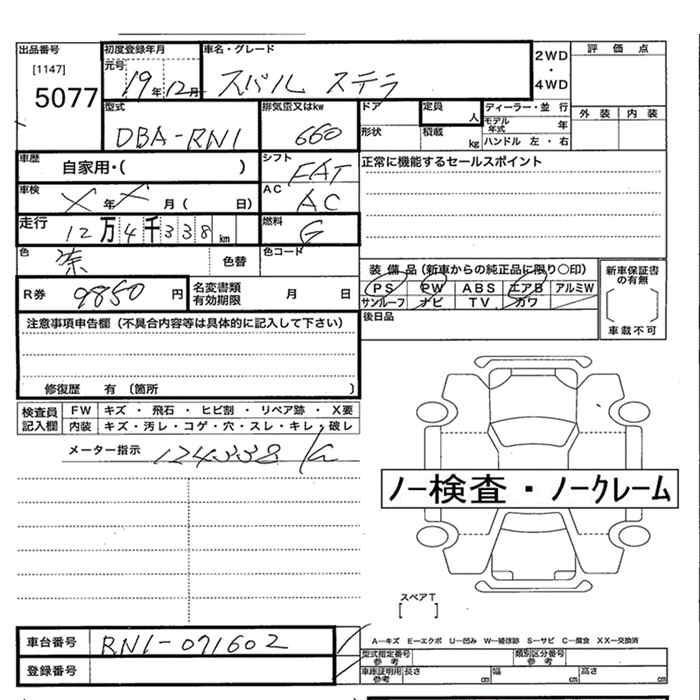 出品番号 初度登録年月 車名・グレード 2WD・4WD 評価点
[1147] 元号 19年12月 スバル ステラ
5077
型式 排気量又はkw ドア 定員 人 ディーラー・並行 外装 内装
DBA-RN1 660 形状 積載 kg モデル年式 年 ハンドル 左・右
車歴 自家用・( ) シフト FAT 正常に機能するセールスポイント
車検 X年X月( 日) AC AC
走行 12万4千338km 燃料 G
色 色替 色コード 装備品(新車からの純正品に限り○印) 新車保証書の有無
PS PW ABS エアB アルミW
R券 9850円 名変書類有効期限 月 日 サンルーフ ナビ TV カワ 車載不可
注意事項申告欄(不具合内容等は具体的に記入して下さい) 後日品
修復歴 有 (箇所 )
検査員記入欄 FW キズ・飛石・ヒビ割・リペア跡・X要
内装 キズ・汚レ・コゲ・穴・スレ・キレ・破レ
メーター指示 124338
ノー検査・ノークレーム
スペアT
[ ]
車台番号 RN1-071602
A―キズ E―エクボ U―凹み W―補修跡 S―サビ C―腐食 XX―交換済
登録番号
型式指定番号 参考 類別区分番号 参考
車庫証明用 参考 長さ cm 幅 cm 高さ cm